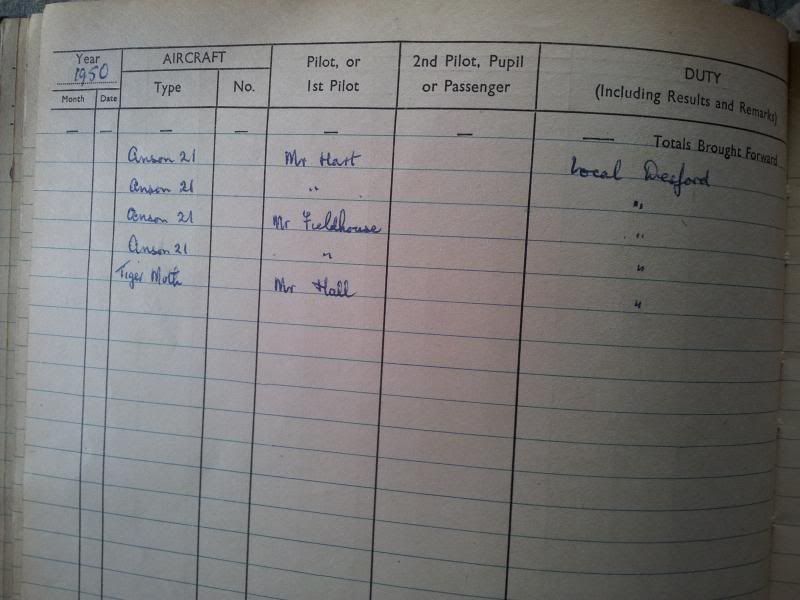 Year AIRCRAFT Pilot, or 2nd Pilot, Pupil DUTY
1950 Type No. 1st Pilot or Passenger (Including Results and Remarks)
Month Date
— — — — — — — Totals Brought Forward
Anson 21 Mr Hart Local Desford
Anson 21 " "
Anson 21 Mr Fieldhouse "
Anson 21 " "
Tiger Moth Mr Hall "